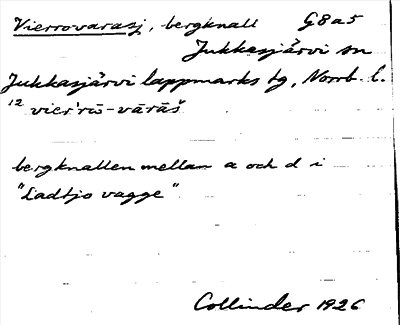 Vierrovarasj, bergknall G8a5
Jukkasjärvi sn
Jukkasjärvi lappmarks tg, Norrb. l.
12 vier'rō-vārāš
bergknallen mellan a och d i
"Ladtjo vagge"
Collinder 1926